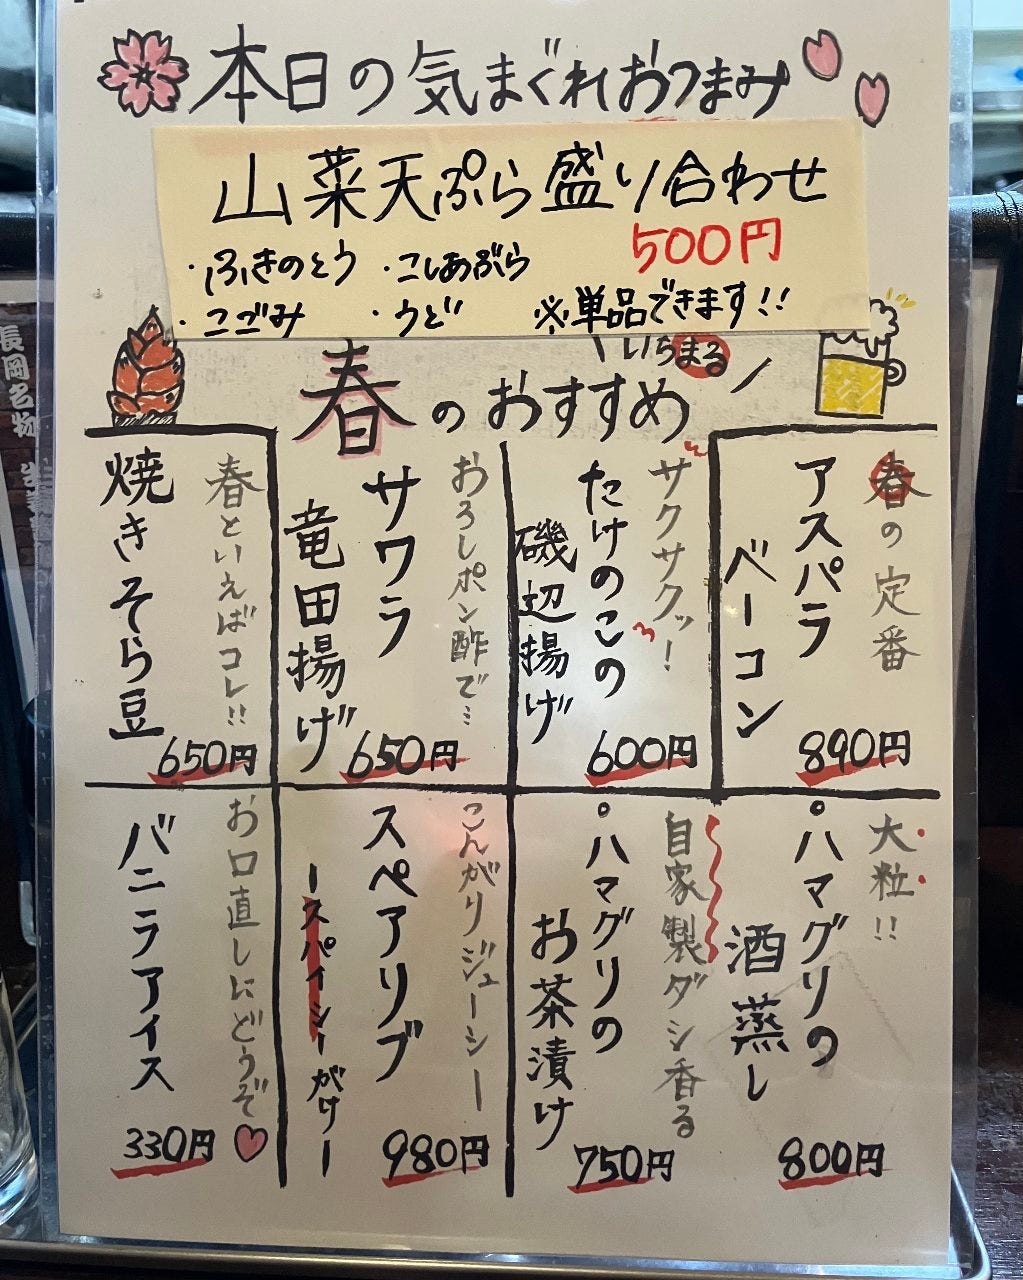 本日の気まぐれおつまみ
山菜天ぷら盛り合わせ
500円
・ふきのとう ・こしあぶら
・こごみ ・うど ※単品できます!!
いちまる
春のおすすめ
春の定番
アスパラ
ベーコン
890円
サクサクッ!
たけのこの
磯辺揚げ
600円
おろしポン酢で…
サワラ
竜田揚げ
650円
春といえばコレ!!
焼きそら豆
650円
大粒!!
ハマグリの
酒蒸し
800円
自家製ダシ香る
ハマグリの
お茶漬け
750円
こんがりジューシー
スペアリブ
ースパイシーガリー
980円
お口直しにどうぞ
バニラアイス
330円
長岡名物